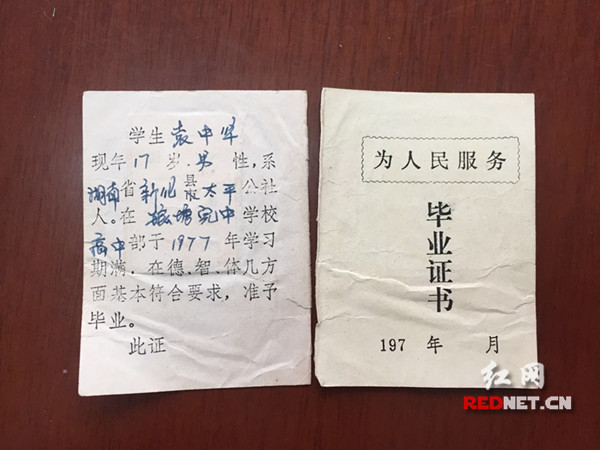 学生袁中军
现年17岁.男性,系
湖南省新化县市太平公社
人。在 塘完中学校
高中部于1977年学习
期满.在德、智、体几方
面基本符合要求,准予
毕业。
此证
为人民服务
毕业证书
197 年 月
红网
REDNET.CN